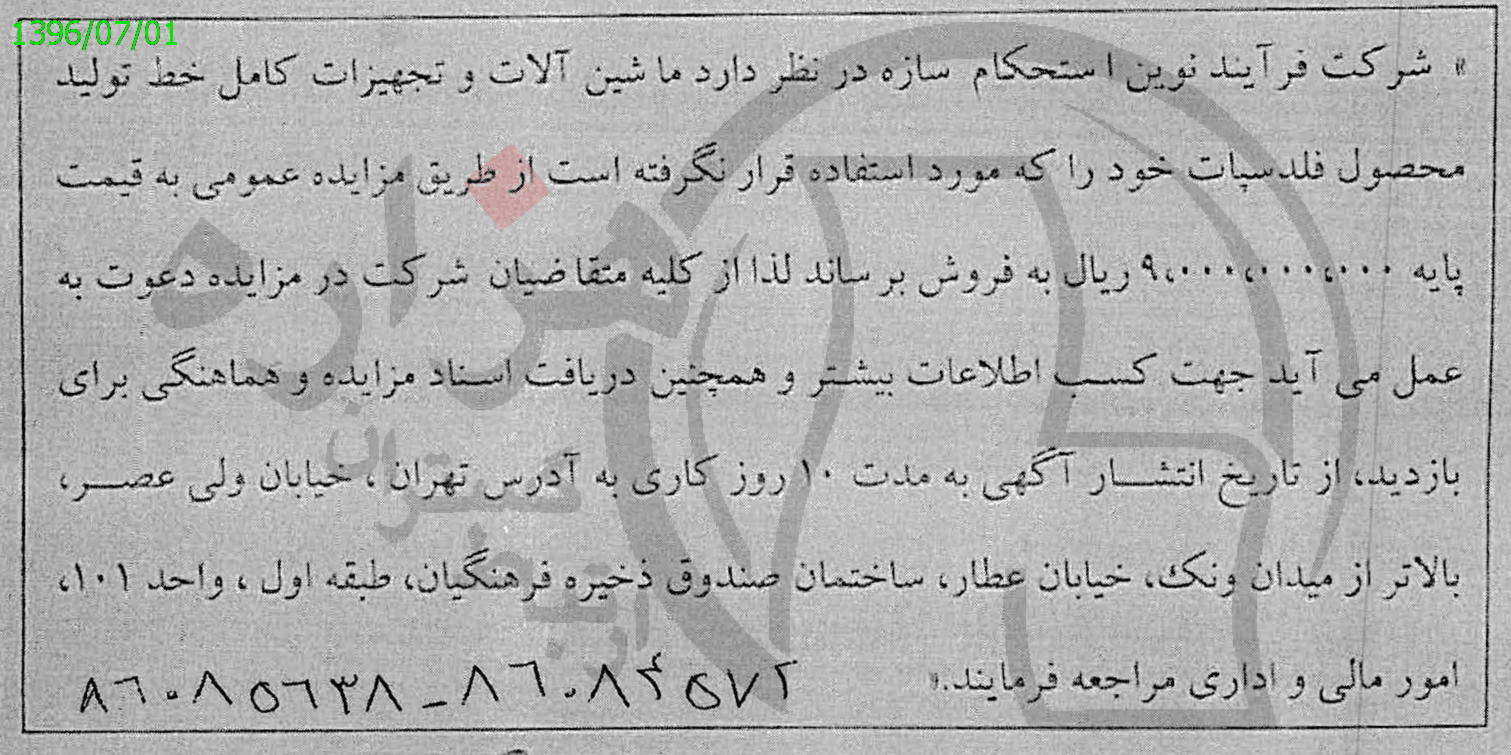 1396/07/01
« شرکت فرآیند نوین استحکام سازه در نظر دارد ماشین آلات و تجهیزات کامل خط تولید
محصول فلدسپات خود را که مورد استفاده قرار نگرفته است از طریق مزایده عمومی به قیمت
پایه ۹،۰۰۰،۰۰۰،۰۰۰ ریال به فروش برساند لذا از کلیه متقاضیان شرکت در مزایده دعوت به
عمل می آید جهت کسب اطلاعات بیشتر و همچنین دریافت اسناد مزایده و هماهنگی برای
بازدید، از تاریخ انتشار آگهی به مدت ۱۰ روز کاری به آدرس تهران ، خیابان ولی عصر،
بالاتر از میدان ونک، خیابان عطار، ساختمان صندوق ذخیره فرهنگیان، طبقه اول ، واحد ۱۰۱،
امور مالی و اداری مراجعه فرمایند.»
۸۶۰۸۵۶۳۸ - ۸۶۰۸۴۵۷۲
هزاره
گستران